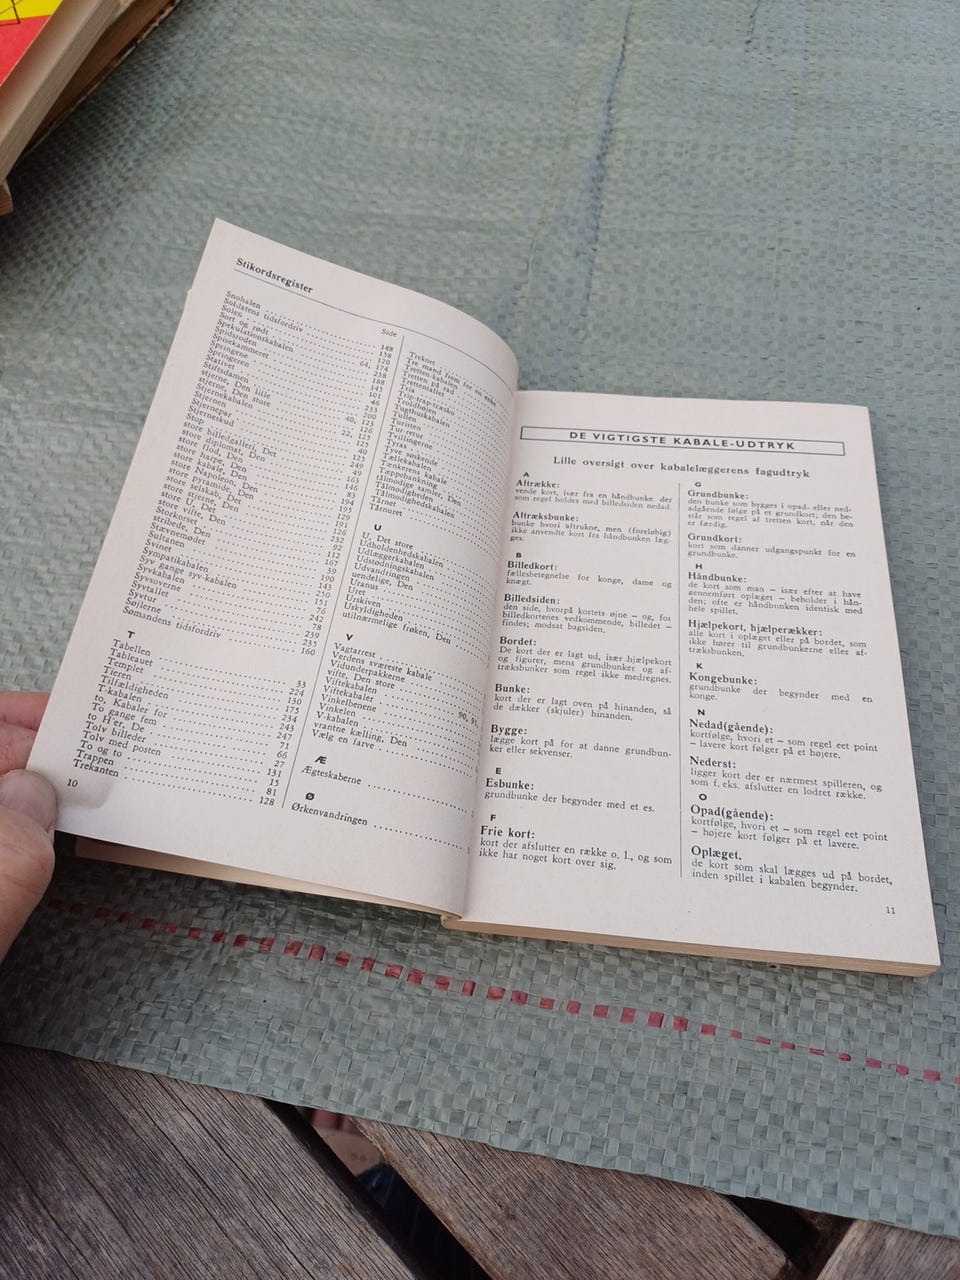 Stikordsregister
Side
Snohalen 148
Soldatens tidsfordriv 158
Solen 120
Sort og rødt 64, 174
Spekulationskabalen 238
Spidsroden 188
Spisekammeret 145
Springene 101
Springeren 46
Stativet 233
Stiftsdamen 200
stjerne, Den lille 40, 123
stjerne, Den store 126
Stjernekabalen 22, 125
Stjernen 125
Stjernepar 40
Stjerneskud 125
Stop 249
store billedgalleri, Det 49
store diplomat, Den 163
store flod, Den 146
store harpe, Den 83
store kabale, Den 194
store Napoleon, Den 195
store pyramide, Den 129
store selskab, Det 191
store stjerne, Den 126
store U, Det 232
store vifte, Den 92
Storkorset 112
stribede, Den 167
Stævnemødet 39
Sultanen 190
Svinet 143
Sympatikabalen 250
Syv gange syv-kabalen 151
Syvkabalen 76
Syvsoverne 242
Syvtallet 78
Syvtur 239
Søjlerne 235
Sømandens tidsfordriv 160
T
Tabellen 33
Tableauet 224
Templet 130
Tieren 175
Tilfældigheden 234
T-kabalen 243
to, Kabaler for 247
To gange fem 71
to H'er, De 66
Tolv billeder 27
Tolv med posten 131
To og to 15
Trappen 81
Trekanten 128
10
Trekort
Tre mand frem for en enke
Tretten-kabalen
Tretten på rad
Trettentallet
Tria
Trip-trap-træsko
Troldhøjen
Tugthuskabalen
Tullen
Turisten
Tur-retur
Tvillingerne
Tyras
Tyve søskende
Tællekabalen
Tænkerens kabale
Tæppebankning
tålmodige samler, Den
Tålmodigheden
Tålmodighedskabalen
Tårnetuden
Tårnuret
U
U, Det store
Udholdenhedskabalen
Udlæggerkabalen
Udstødningskabalen
Udvandringen
uendelige, Den
Uranus
Uret
Urskiven
Uskyldigheden
utilnærmelige frøken, Den
V
Vagtarrest
Verdens sværeste kabale
Vidunderpakkerne
vifte, Den store
Viftekabalen
Viftekabaler 90,
Vinkelbenene
Vinkelen
V-kabalen
vrantne kælling, Den
Vælg en farve
Æ
Ægteskaberne
Ø
Ørkenvandringen
DE VIGTIGSTE KABALE-UDTRYK
Lille oversigt over kabalelæggerens fagudtryk
A
Aftrække:
vende kort, især fra en håndbunke der
som regel holdes med billedsiden nedad.
Aftræksbunke:
bunke hvori aftrukne, men (foreløbig)
ikke anvendte kort fra håndbunken læg-
ges.
B
Billedkort:
fællesbetegnelse for konge, dame og
knægt.
Billedsiden:
den side, hvorpå kortets øjne – og, for
billedkortenes vedkommende, billedet –
findes; modsat bagsiden.
Bordet:
De kort der er lagt ud, især hjælpekort
og figurer, mens grundbunker og af-
træksbunker som regel ikke medregnes.
Bunke:
kort der er lagt oven på hinanden, så
de dækker (skjuler) hinanden.
Bygge:
lægge kort på for at danne grundbun-
ker eller sekvenser.
E
Esbunke:
grundbunke der begynder med et es.
F
Frie kort:
kort der afslutter en række o. l., og som
ikke har noget kort over sig.
G
Grundbunke:
den bunke som bygges i opad- eller ned-
adgående følge på et grundkort; den be-
står som regel af tretten kort, når den
er færdig.
Grundkort:
kort som danner udgangspunkt for en
grundbunke.
H
Håndbunke:
de kort som man – især efter at have
gennemført oplæget – beholder i hån-
den; ofte er håndbunken identisk med
hele spillet.
Hjælpekort, hjælperækker:
alle kort i oplæget eller på bordet, som
ikke hører til grundbunkerne eller af-
træksbunken.
K
Kongebunke:
grundbunke der begynder med en
konge.
N
Nedad(gående):
kortfølge, hvori et – som regel eet point
– lavere kort følger på et højere.
Nederst:
ligger kort der er nærmest spilleren, og
som f. eks. afslutter en lodret række.
O
Opad(gående):
kortfølge, hvori et – som regel eet point
– højere kort følger på et lavere.
Oplæget.
de kort som skal lægges ud på bordet,
inden spillet i kabalen begynder.
11